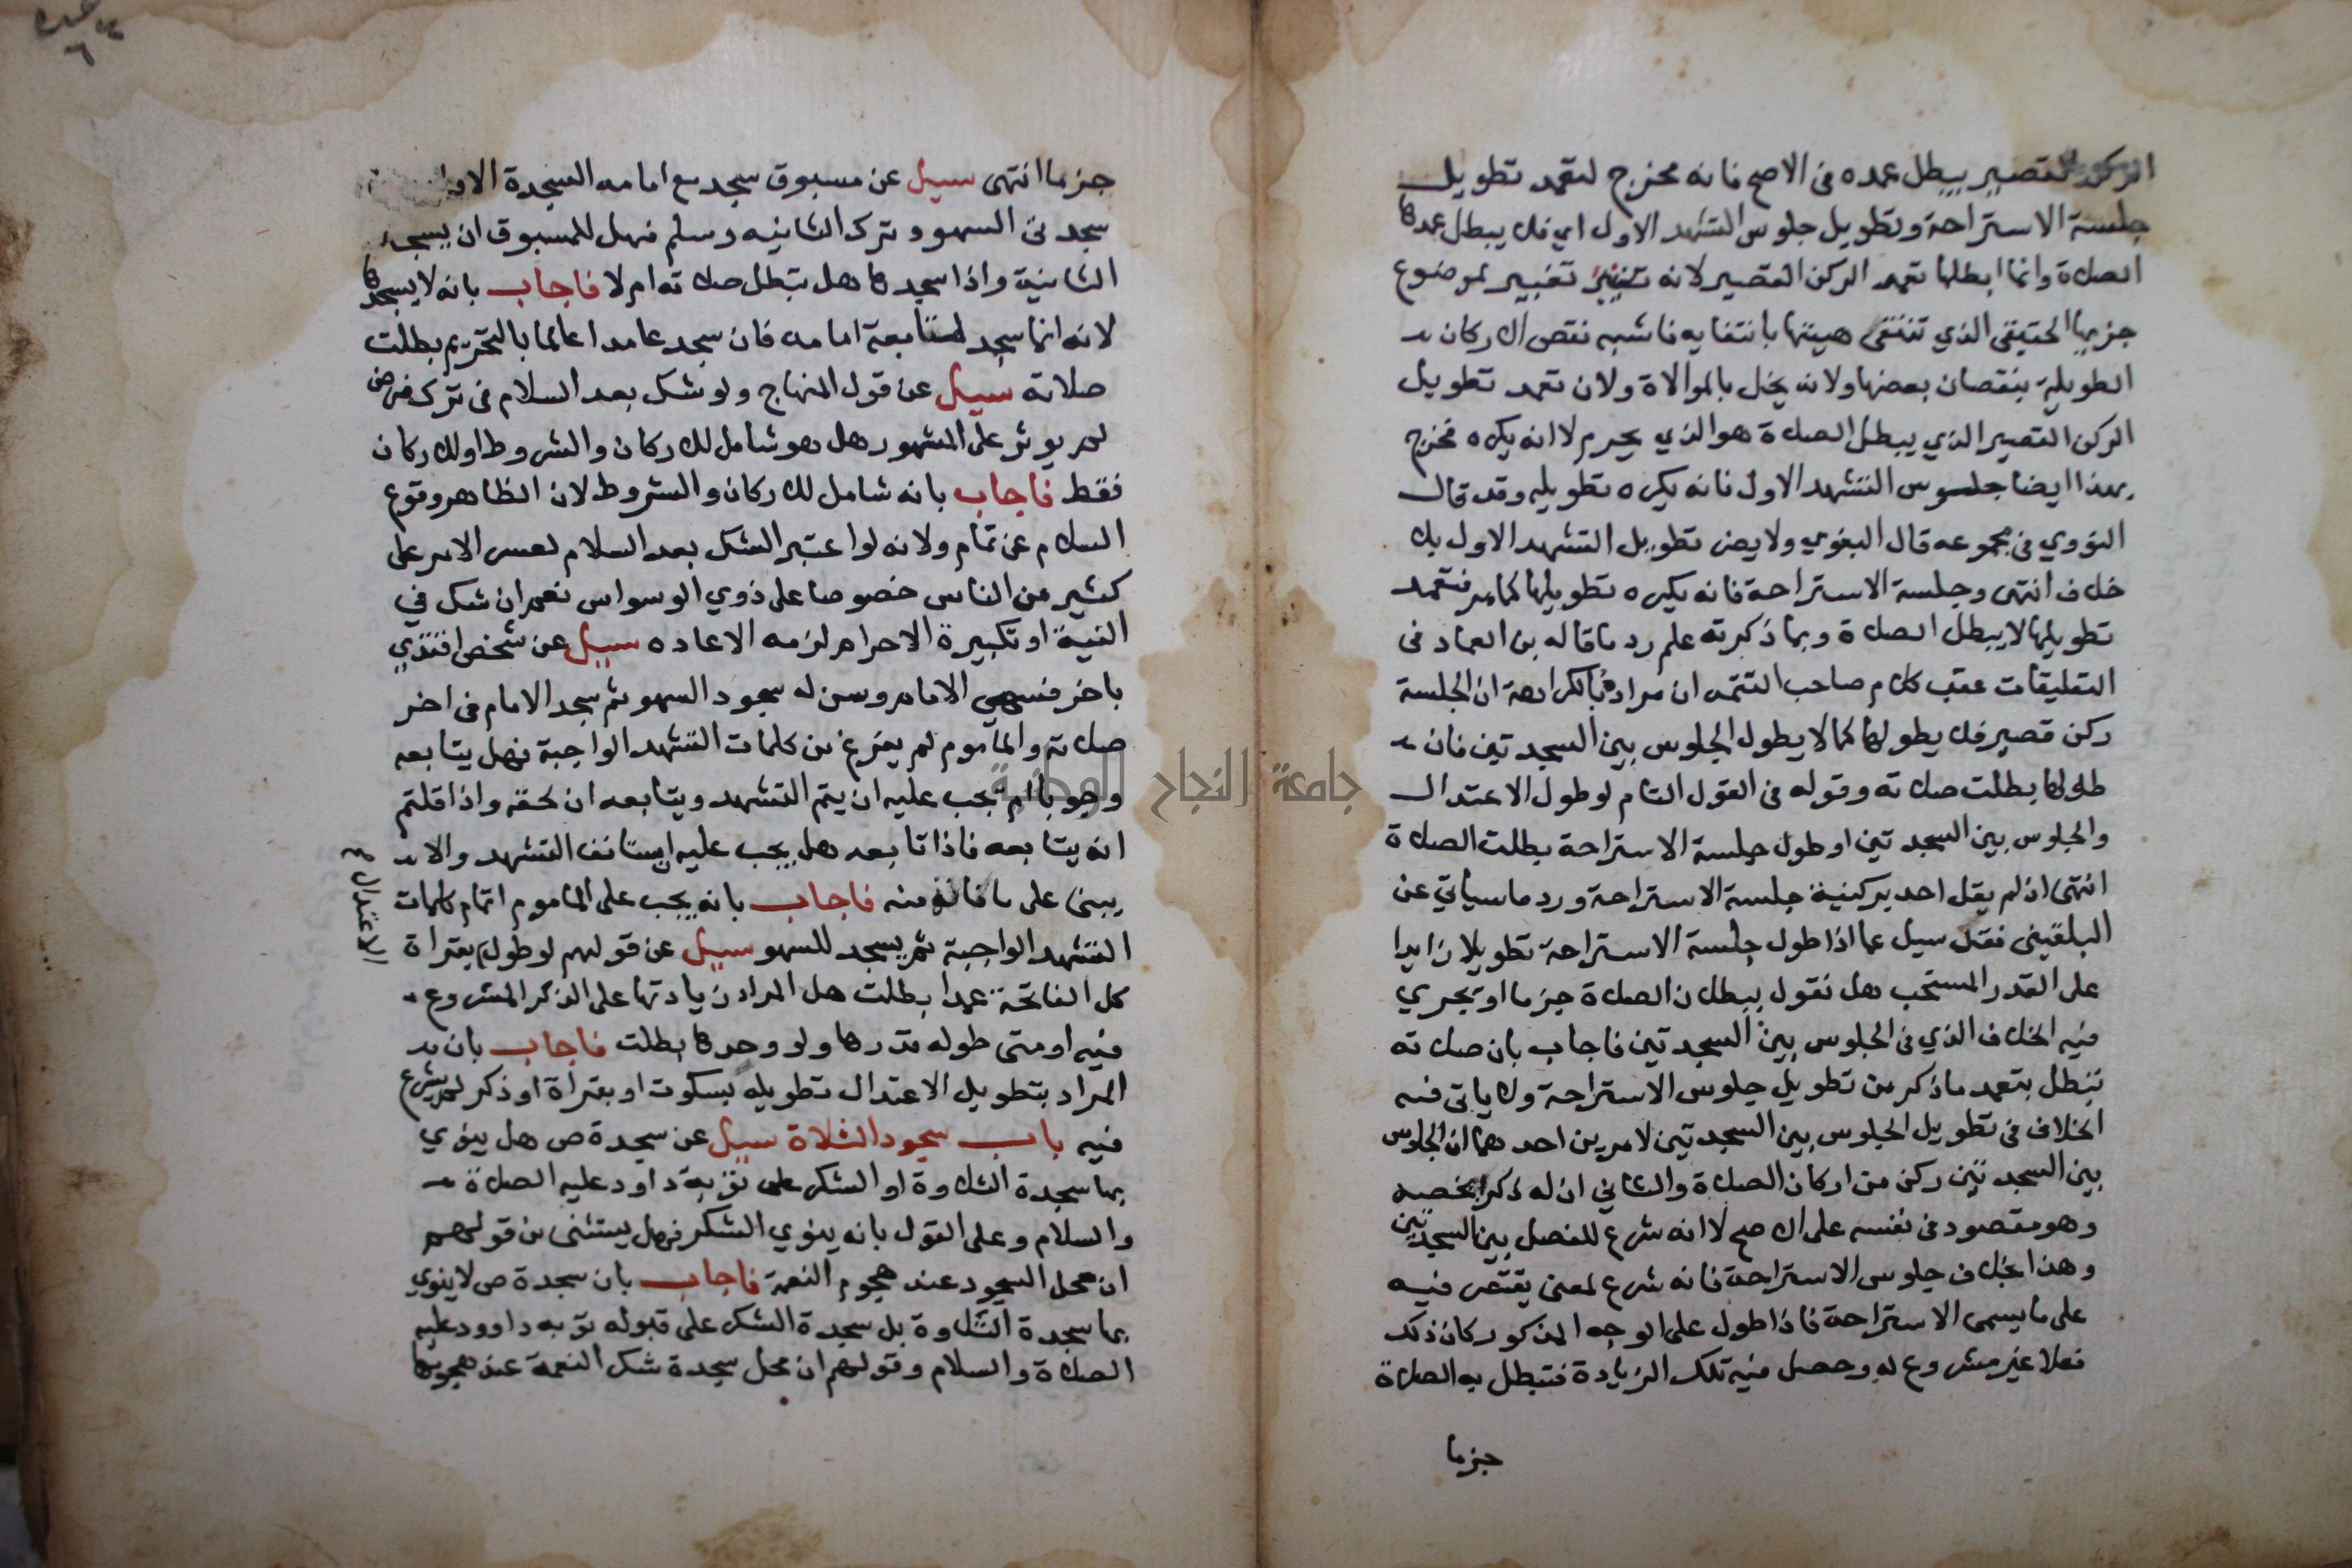 الركن القصير يبطل عمده في الاصح فانه مخرج لتعمد تطويل
جلسة الاستراحة وتطويل جلوس التشهد الاول اي فلا يبطل عمدها
الصلاة وانما ابطلها تعمد الركن القصير لانه تغيير لموضوع
جزيها الحقيقي الذي تنتفي هيئتها بانتفايه فاشبه نقص الاركان
الطويلة بنقصان بعضها ولانه يخل بالموالاة ولان تعمد تطويل
الركن القصير الذي يبطل الصلاة هو الذي يحرم لا انه يكره فخرج
بهذا ايضا جلوس التشهد الاول فانه يكره تطويله وقد قال
النووي في مجموعه قال البغوي ولا يضر تطويل التشهد الاول بلا
خلاف انتهى وجلسة الاستراحة فانه يكره تطويلها كما مر فتعمد
تطويلها لا يبطل الصلاة وبما ذكرته علم رد ما قاله بن العماد في
التعليقات عقب كلام صاحب التتمه ان مراده بالكراهة ان الجلسة
ركن قصير فلا يطولها كما لا يطول الجلوس بين السجدتين فان
طولها بطلت صلاته وقوله في القول التام لو طول الاعتدال
والجلوس بين السجدتين او طول جلسة الاستراحة بطلت الصلاة
انتهى اذ لم يقل احد بركنية جلسة الاستراحة ورد ما سياتي عن
البلقيني فقد سيل عما اذا طول جلسة الاستراحة تطويلا زايدا
على القدر المستحب هل نقول ببطلان الصلاة جزما او يجري
فيه الخلاف الذي في الجلوس بين السجدتين فاجاب بان صلاته
تبطل بتعمد ما ذكر من تطويل جلوس الاستراحة ولا ياتي فيه
الخلاف في تطويل الجلوس بين السجدتين لامرين احدهما ان الجلوس
بين السجدتين ركن من اركان الصلاة والثاني ان له ذكرا يخصه
وهو مقصود في نفسه على الاصح لا انه شرع للفصل بين السجدتين
وهذا بخلاف جلوس الاستراحة فانه شرع لمعنى يقتصر فيه
على ما يسمى الاستراحة فاذا طول على الوجه المذكور كان ذلك
فعلا غير مشروع له وحصل فيه تلك الزيادة فتبطل به الصلاة
جزما
جزما انتهى سيل عن مسبوق سجد مع امامه السجدة الاولى
سجد في السهو وترك الثانيه وسلم فهل للمسبوق ان يسجد
الثانية واذا سجدها هل تبطل صلاته ام لا فاجاب بانه لا يسجدها
لانه انما سجد لمتابعة امامه فان سجد عامدا عالما بالتحريم بطلت
صلاته سيل عن قول المنهاج ولو شك بعد السلام في ترك فرض
لم يوثر على المشهور هل هو شامل للاركان والشروط او للاركان
فقط فاجاب بانه شامل للاركان والشروط لان الظاهر وقوع
السلام عن تمام ولانه لو اعتبر الشك بعد السلام لعسر الامر على
كثير من الناس خصوصا على ذوي الوسواس نعم ان شك في
النية او تكبيرة الاحرام لزمه الاعاده سيل عن شخص اقتدى
باخر فسهى الامام وسن له سجود السهو ثم سجد الامام في اخر
صلاته والماموم لم يفرغ من كلمات التشهد الواجبة فهل يتابعه
وجوبا ام يجب عليه ان يتم التشهد ويتابعه ان لحقه واذا قلتم
انه يتابعه فاذا تابعه هل يجب عليه استئناف التشهد والا
يبنى على ما فاته منه فاجاب بانه يجب على الماموم اتمام كلمات
التشهد الواجبة ثم يسجد للسهو سيل عن قولهم لو طول بقراة
الاعتدال
كل الفاتحة عمدا بطلت هل المراد زيادتها على الذكر المشروع
فيه او متى طوله قدرها ولو وحدها بطلت فاجاب بان
المراد بتطويل الاعتدال تطويله بسكوت او بقراة او ذكر لم يشرع
فيه باب سجود التلاة سيل عن سجدة ص هل ينوي
بها سجدة التلاوة او الشكر على توبة داود عليه الصلاة
والسلام وعلى القول بانه ينوي الشكر فهل يستثنى من قولهم
ان محل السجود عند هجوم النعمة فاجاب بان سجدة ص لا ينوي
بها سجدة التلاوة بل سجدة الشكر على قبوله توبة داوود عليه
الصلاة والسلام وقولهم ان محل سجدة شكر النعمة عند هجومها
جامعة النجاح الوطنية